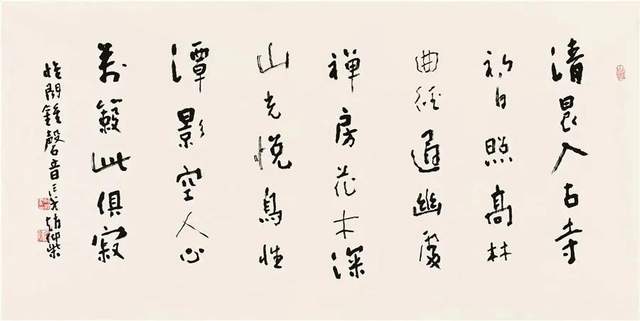 清晨入古寺
初日照高林
曲徑通幽處
禅房花木深
山光悦鳥性
潭影空人心
萬籟此俱寂
惟聞鐘磬音